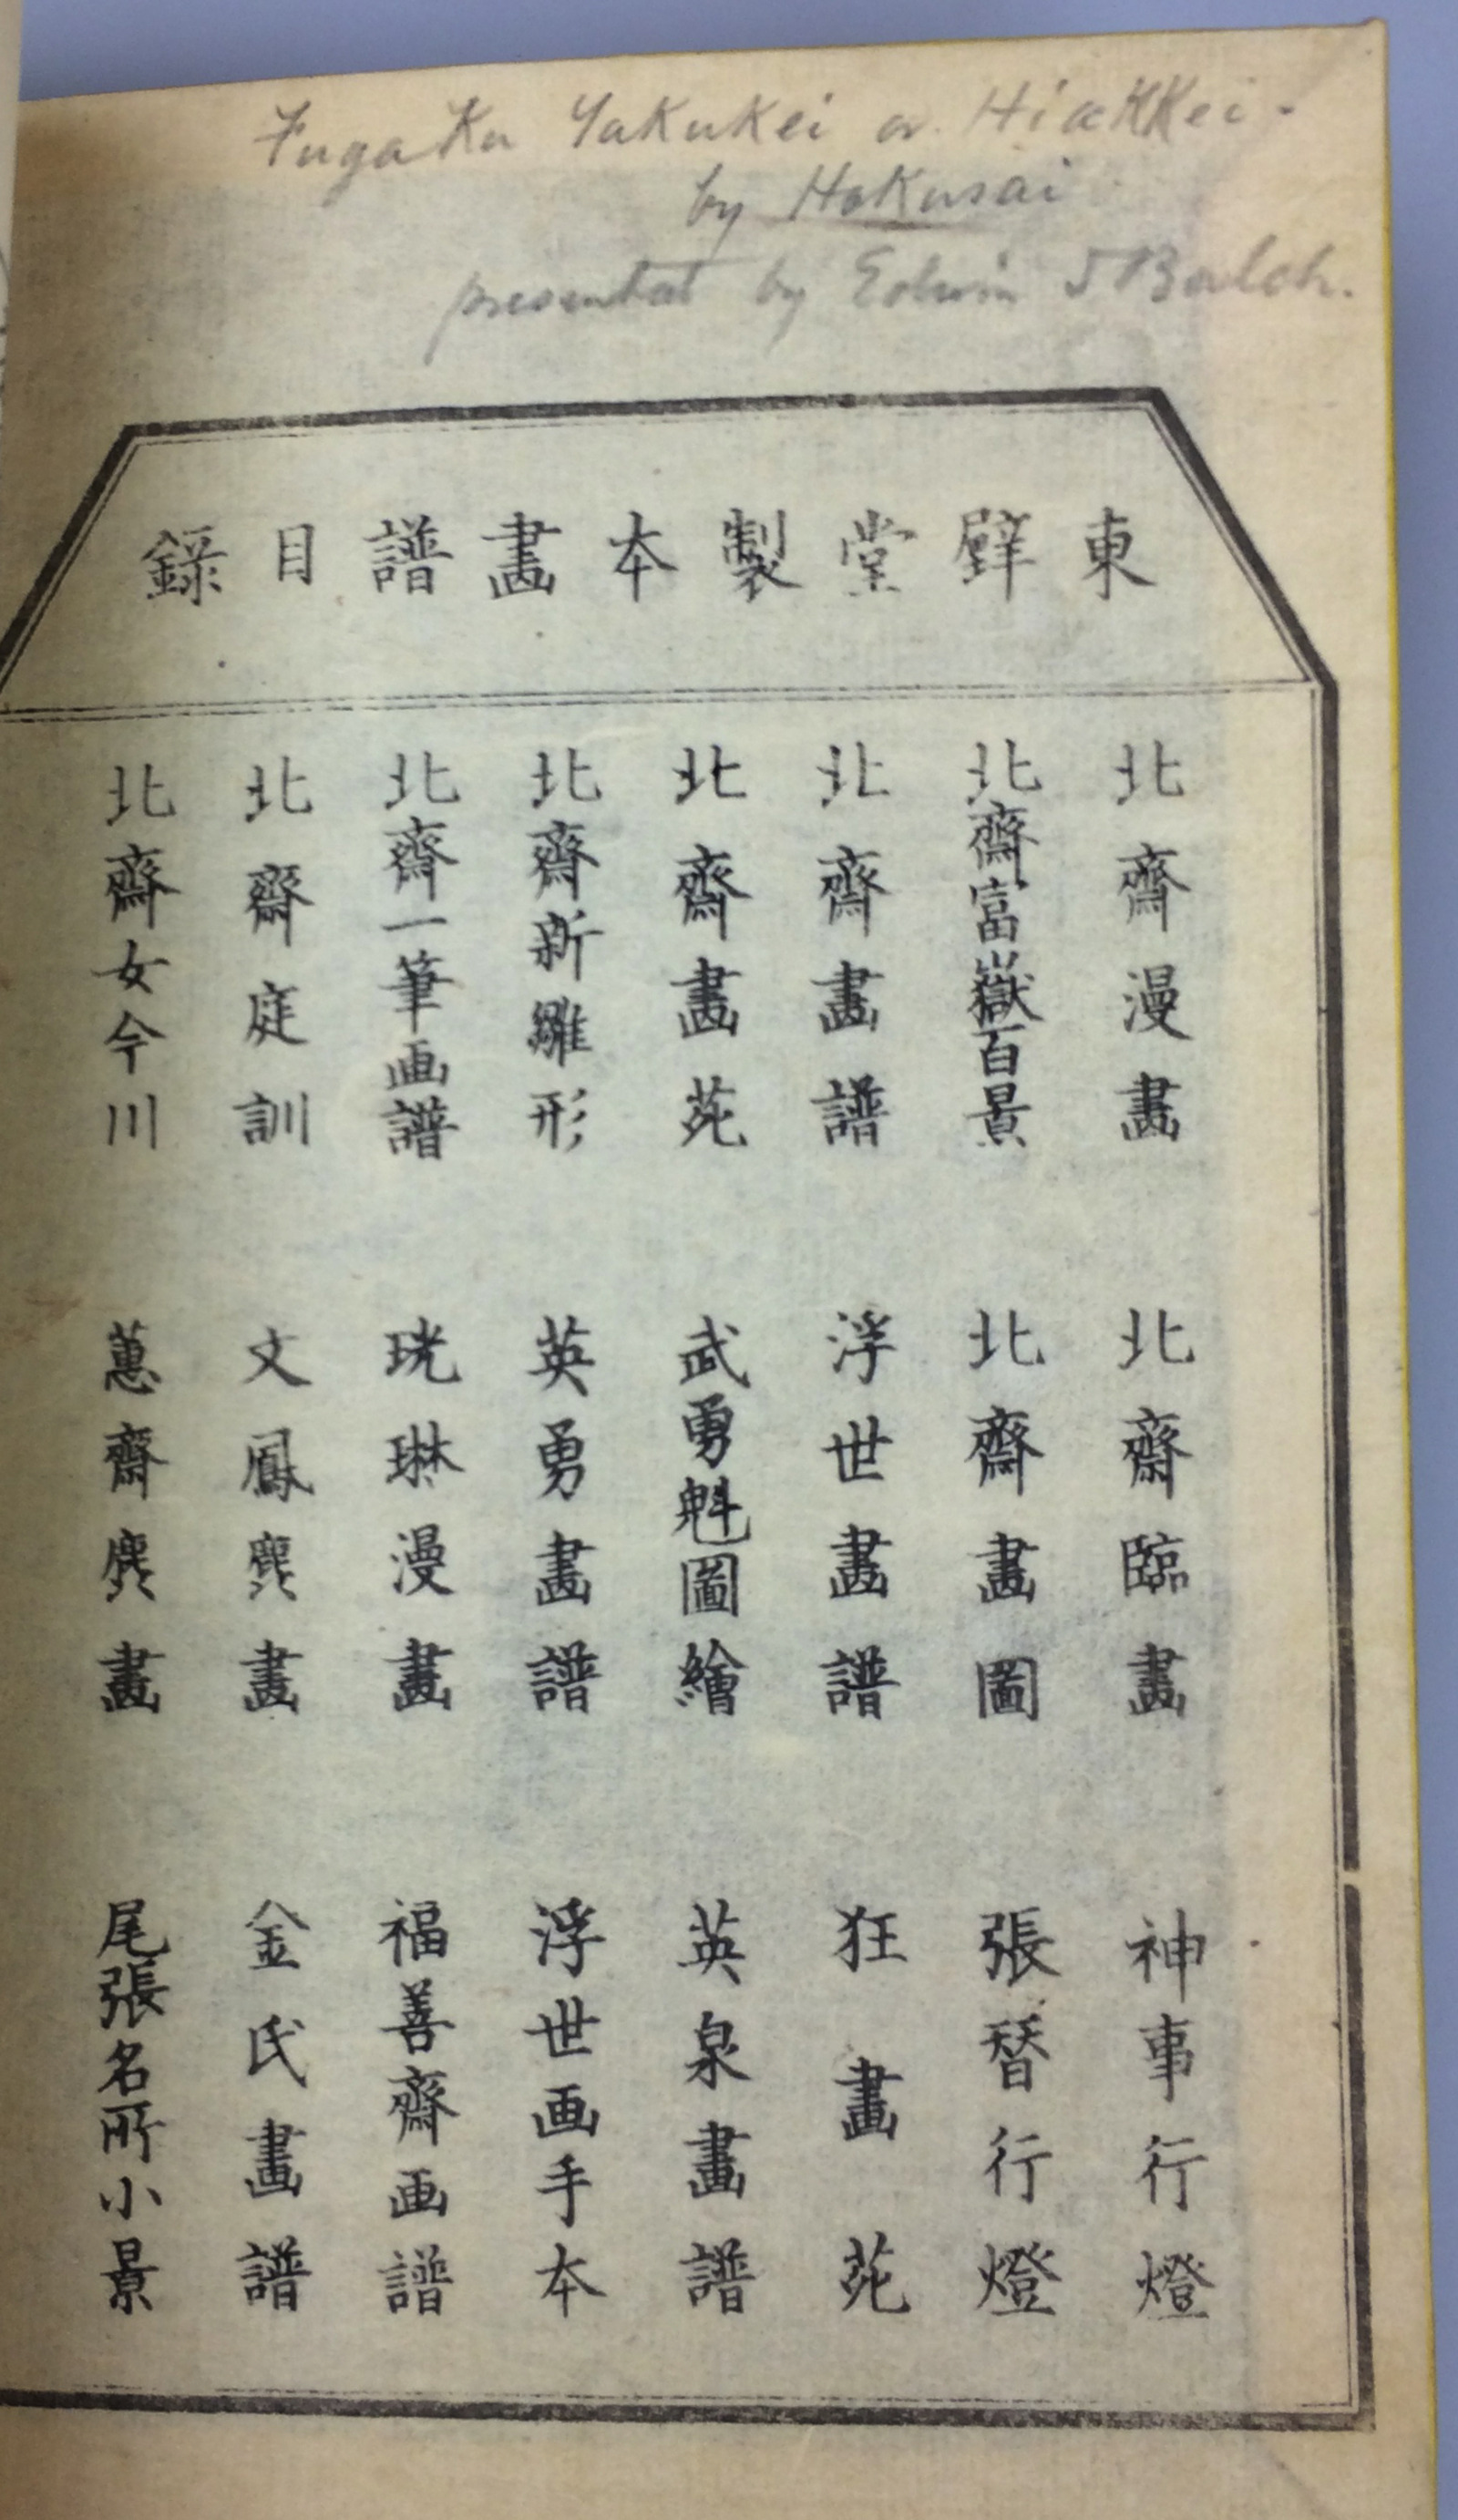 Fugaku Yakukei or Hiakkei.
by Hokusai
presented by Edwin S Balch.
東壁堂製本畫譜目録
北齋漫畫
北齋富嶽百景
北齋畫譜
北齋畫苑
北齋新雛形
北齋一筆画譜
北齋庭訓
北齋女今川
北齋臨畫
北齋畫圖
浮世畫譜
武勇魁圖繪
英勇畫譜
珖琳漫畫
文鳳麁畫
蕙齋麁畫
神事行燈
張替行燈
狂畫苑
英泉畫譜
浮世画手本
福善齋画譜
金氏畫譜
尾張名所小景